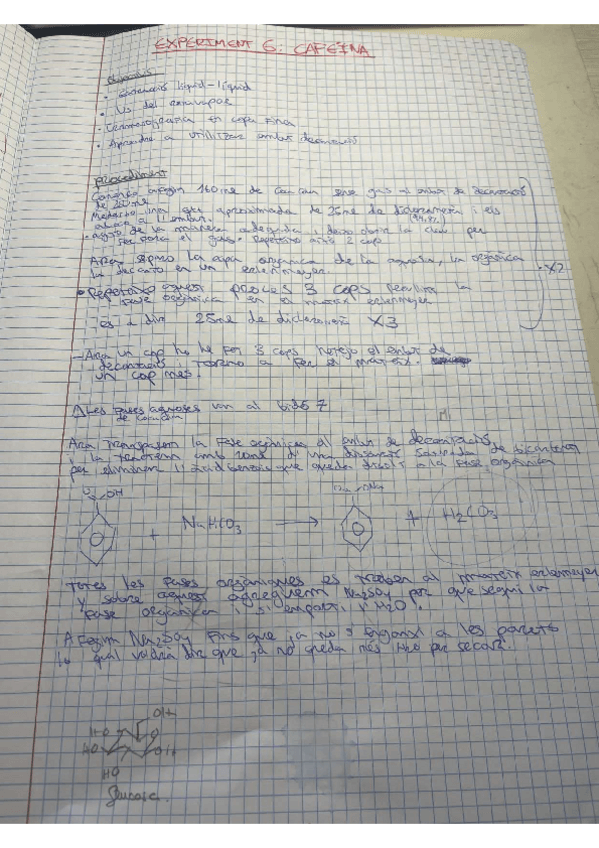 EXPERIMENT 6: CAFEÏNA
Objectius
• Extracció líquid-líquid
• Ús del rotavapor
• Cromatografia en capa fina
• Aprendre a utilitzar embut decantació
Procediment
160 mL de sense gas al embut de decantació
de 250 mL
aproximada de 25 mL de diclorometà i els
agito de la manera adequida i deixo obrir la clau per
fer fora el gas. Repeteixo això 2 cops
Ara separo la capa orgànica de la aquosa, la orgànica
la decanto en un erlenmeyer.
• Repeteixo aquest procés 3 cops la
fase orgànica en el mateix erlenmeyer
es a dir 25 mL de diclorometà X3
X2
- Ara un cop ho he fet 3 cops, netejo el embut de
decantació i torno a fer el mateix.
un cop més.
Les fases aquoses van al bidó 7
Ara transpassem la fase orgànica al embut de decantació
i la rentem amb 20mL d'una dissolució saturada de bicarbonat
per eliminar l'àcid benzoic que queda dissolt a la fase orgànica
O OH
+ NaHCO3 → + H2CO3
Totes les fases orgàniques es troben al mateix erlenmeyer
y sobre aquest agreguem Na2SO4 per que sequi la
fase orgànica i s'emporti l'H2O.
Afegim Na2SO4 fins que ja no s'enganxi a les parets
lo qual voldrà dir que ja no queda més H2O per secar.
OH
HO O
HO OH
HO
Glucosa.